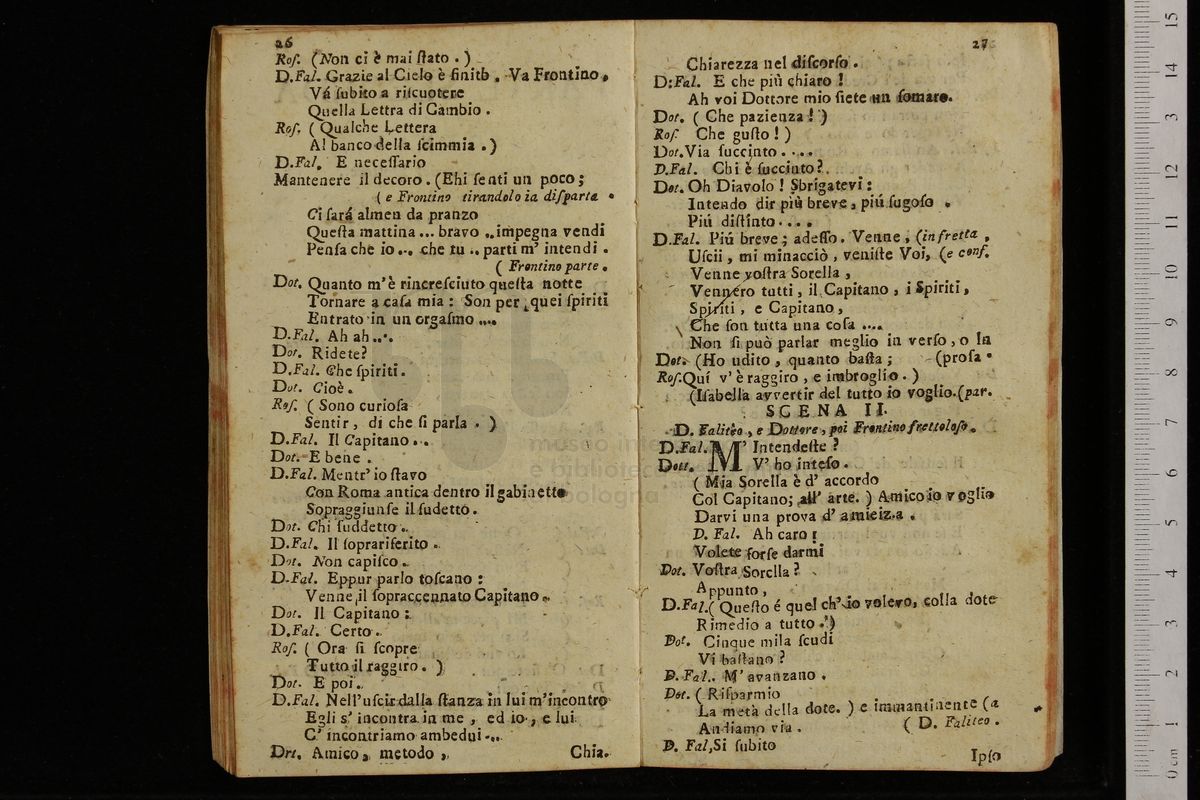 26
Roſ. (Non ci è mai ſtato . )
D.Fal. Grazie al Cielo è finitò . Va Frontino,
Vá ſubito a riſcuotere
Quella Lettra di Cambio .
Roſ. ( Qualche Lettera
Al banco della ſcimmia . )
D.Fal. E neceſſario
Mantenere il decoro . (Ehi ſenti un poco ;
( e Frontino tirandolo ia diſparta .
Ci ſará almen da pranzo
Queſta mattina ... bravo .. impegna vendi
Penſa che io ... che tu .. parti m' intendi .
( Frontino parte .
Dot. Quanto m'è rincreſciuto queſta notte
Tornare a caſa mia : Son per quei ſpiriti
Entrato in un orgaſmo ....
D.Fal. Ah ah ...
Dot. Ridete?
D.Fal. Che ſpiriti .
Dot. Cioè .
Roſ. ( Sono curioſa
Sentir , di che ſi parla . )
D.Fal. Il Capitano ...
Dot. E bene .
D.Fal. Mentr' io ſtavo
Con Roma antica dentro il gabinetto
Sopraggiunſe il ſudetto .
Dot. Chi ſuddetto ..
D.Fal. Il ſoprariferito .
Dot. Non capiſco ..
D.Fal. Eppur parlo toſcano :
Venne il ſopraccennato Capitano ..
Dot. Il Capitano :
D.Fal. Certo ..
Roſ. ( Ora ſi ſcopre
Tutto il raggiro . )
Dot. E poi ..
D.Fal. Nell'uſcir dalla ſtanza in lui m'incontro
Egli s' incontra in me , ed io , e lui
C' incontriamo ambedui ...
Drt. Amico , metodo ,
Chia.
27
Chiarezza nel diſcorſo .
D:Fal. E che più chiaro !
Ah voi Dottore mio ſiete un ſomaro.
Dot. ( Che pazienza ! )
Roſ. Che guſto ! )
Dot. Via ſuccinto ....
D.Fal. Chi è ſuccinto ?
Dot. Oh Diavolo ! Sbrigatevi :
Intendo dir più breve , piú ſugoſo .
Piú diſtinto ....
D.Fal. Piú breve ; adeſſo . Venne , (in fretta ,
Uſcii , mi minacciò , veniſte Voi, (e conf.
Venne voſtra Sorella ,
Vennero tutti , il Capitano , i Spiriti ,
Spiriti , e Capitano ,
Che ſon tutta una coſa ....
Non ſi può parlar meglio in verſo , o In
Dot. (Ho udito , quanto baſta ; (proſa .
Roſ. Quí v' è raggiro , e imbroglio . )
(Iſabella avvertir del tutto io voglio.(par.
SCENA II.
D. Faliteo , e Dottore , poi Frontino frettoloſo .
D.Fal. M' Intendeſte ?
Dott. V' ho inteſo .
( Mia Sorella è d' accordo
Col Capitano; all' arte. ) Amico io voglio
Darvi una prova d' amicizia .
D. Fal. Ah caro !
Volete forſe darmi
Dot. Voſtra Sorella ?
Appunto ,
D.Fal. ( Queſto é quel ch' io volevo, colla dote
Rimedio a tutto . )
Dot. Cinque mila ſcudi
Vi baſtano ?
D. Fal.. M' avanzano .
Dot. ( Riſparmio
La metà della dote. ) e immantinente (a
Andiamo via . ( D. Faliteo .
D. Fal, Si ſubito
Ipſo